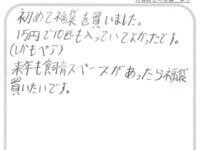 初めて福袋を買いました。
1万円で10匹も入っていてよかったです。
(しかもペア)
来年も飼育スペースがあったら福袋
買いたいです。